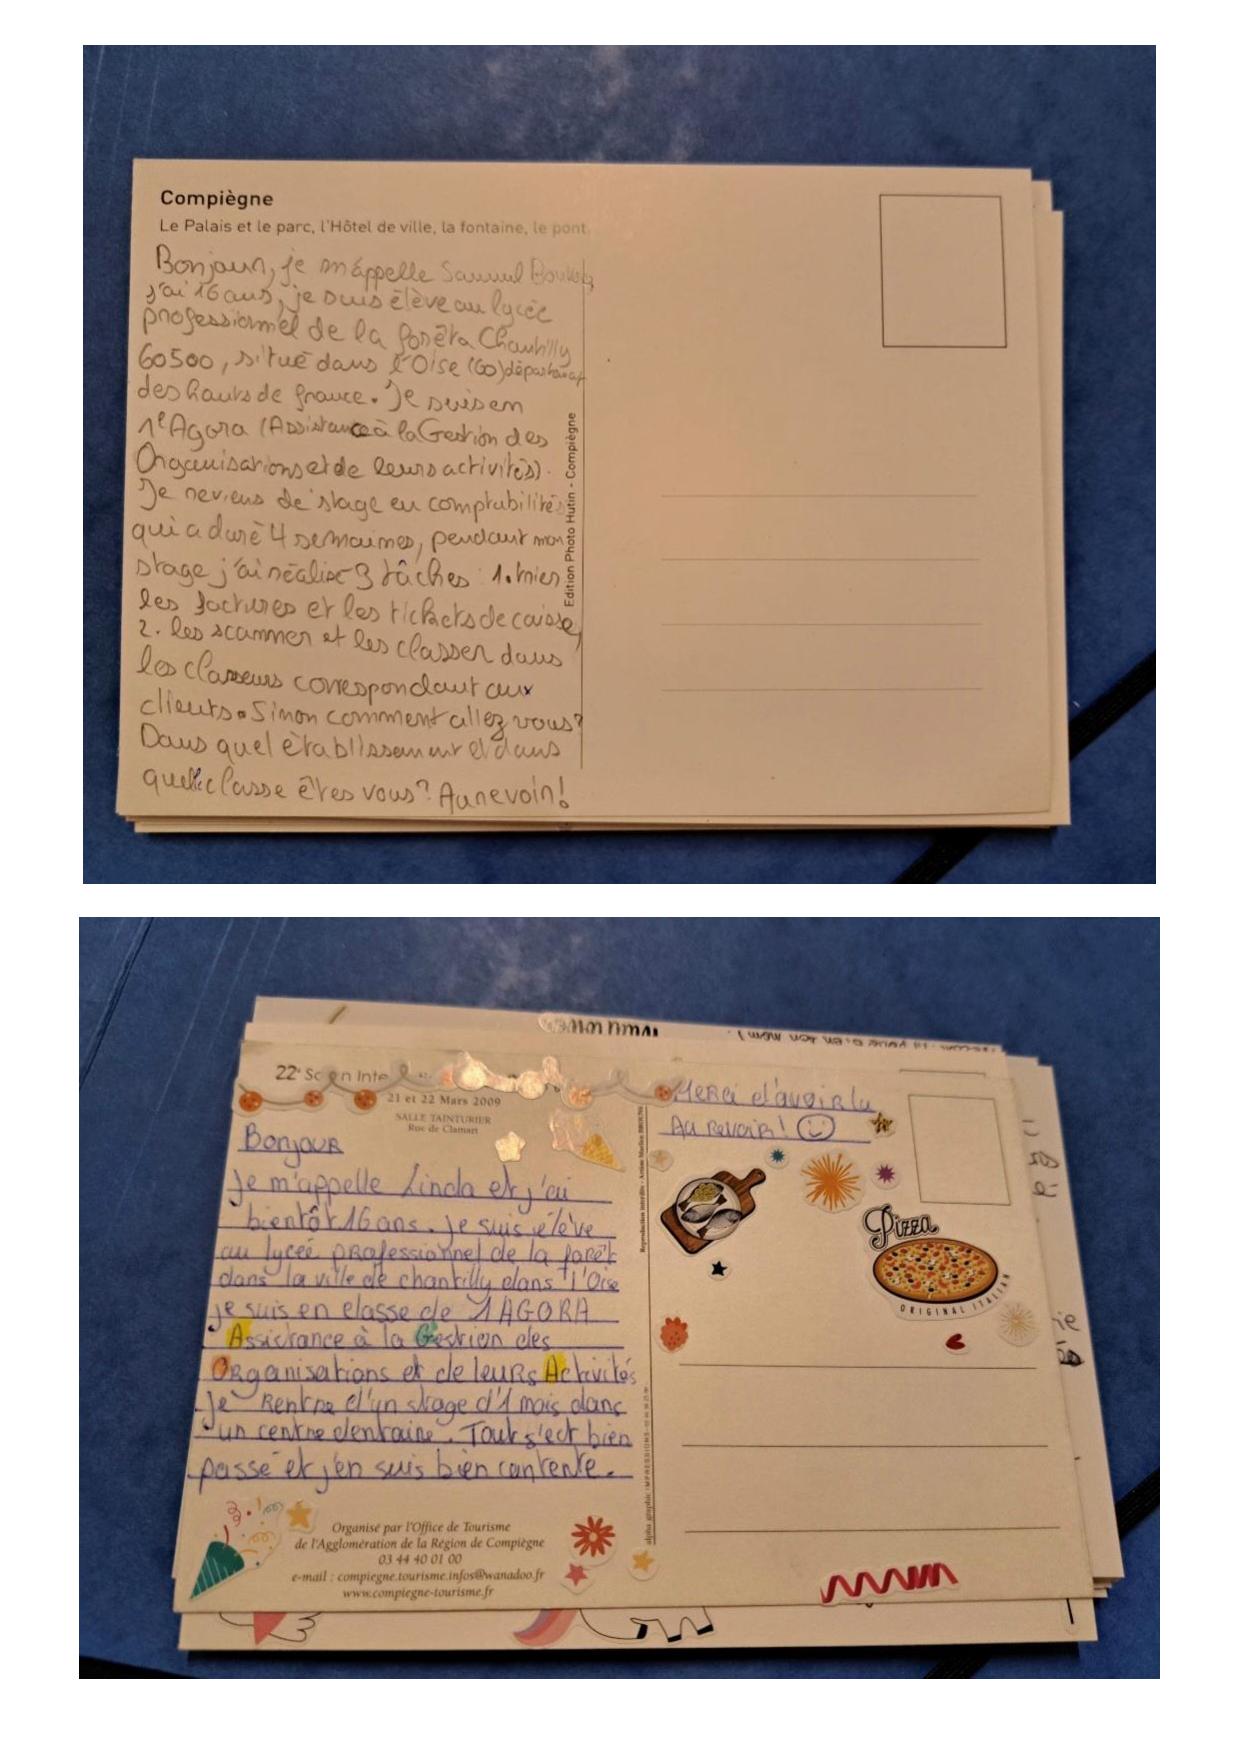 Compiègne
Le Palais et le parc, l'Hôtel de ville, la fontaine, le pont.
Bonjour, je m'appelle Samuel
j'ai 16 ans, je suis élève au lycée
professionnel de la forêt a Chantilly
60500, situé dans l'Oise (60) département
des hauts de france. Je suis en
1e Agora (Assistance à la Gestion des
Organisations et de leurs activités).
Je reviens de stage en comptabilités
qui a duré 4 semaines, pendant mon
stage j'ai réalisé 3 tâches : 1. trier
les factures et les tickets de caisse,
2. les scanner et les classer dans
les classeurs correspondant aux
clients. Sinon comment allez vous?
Dans quel établissement et dans
quelle classe êtes vous? Au revoir!
Edition Photo Hutin - Compiègne
22e
21 et 22 Mars 2009
SALLE TAINTURIER
Rue de Clamart
Bonjour
Je m'appelle Linda et j'ai
bientôt 16 ans. Je suis élève
au lyceé professionnel de la forêt
dans la ville de chantilly dans l'Oise
je suis en classe de 1AGORA
Assistance à la Gestion des
Organisations et de leurs Activités
Je Rentre d'un stage d'1 mois dans
un centre dentaire. Tout s'est bien
passé et j'en suis bien contente.
Organisé par l'Office de Tourisme
de l'Agglomération de la Région de Compiègne
03 44 40 01 00
e-mail : compiegne.tourisme.infos@wanadoo.fr
www.compiegne-tourisme.fr
Merci d'avoir lu
Au revoir!
Pizza
ORIGINAL ITALIAN